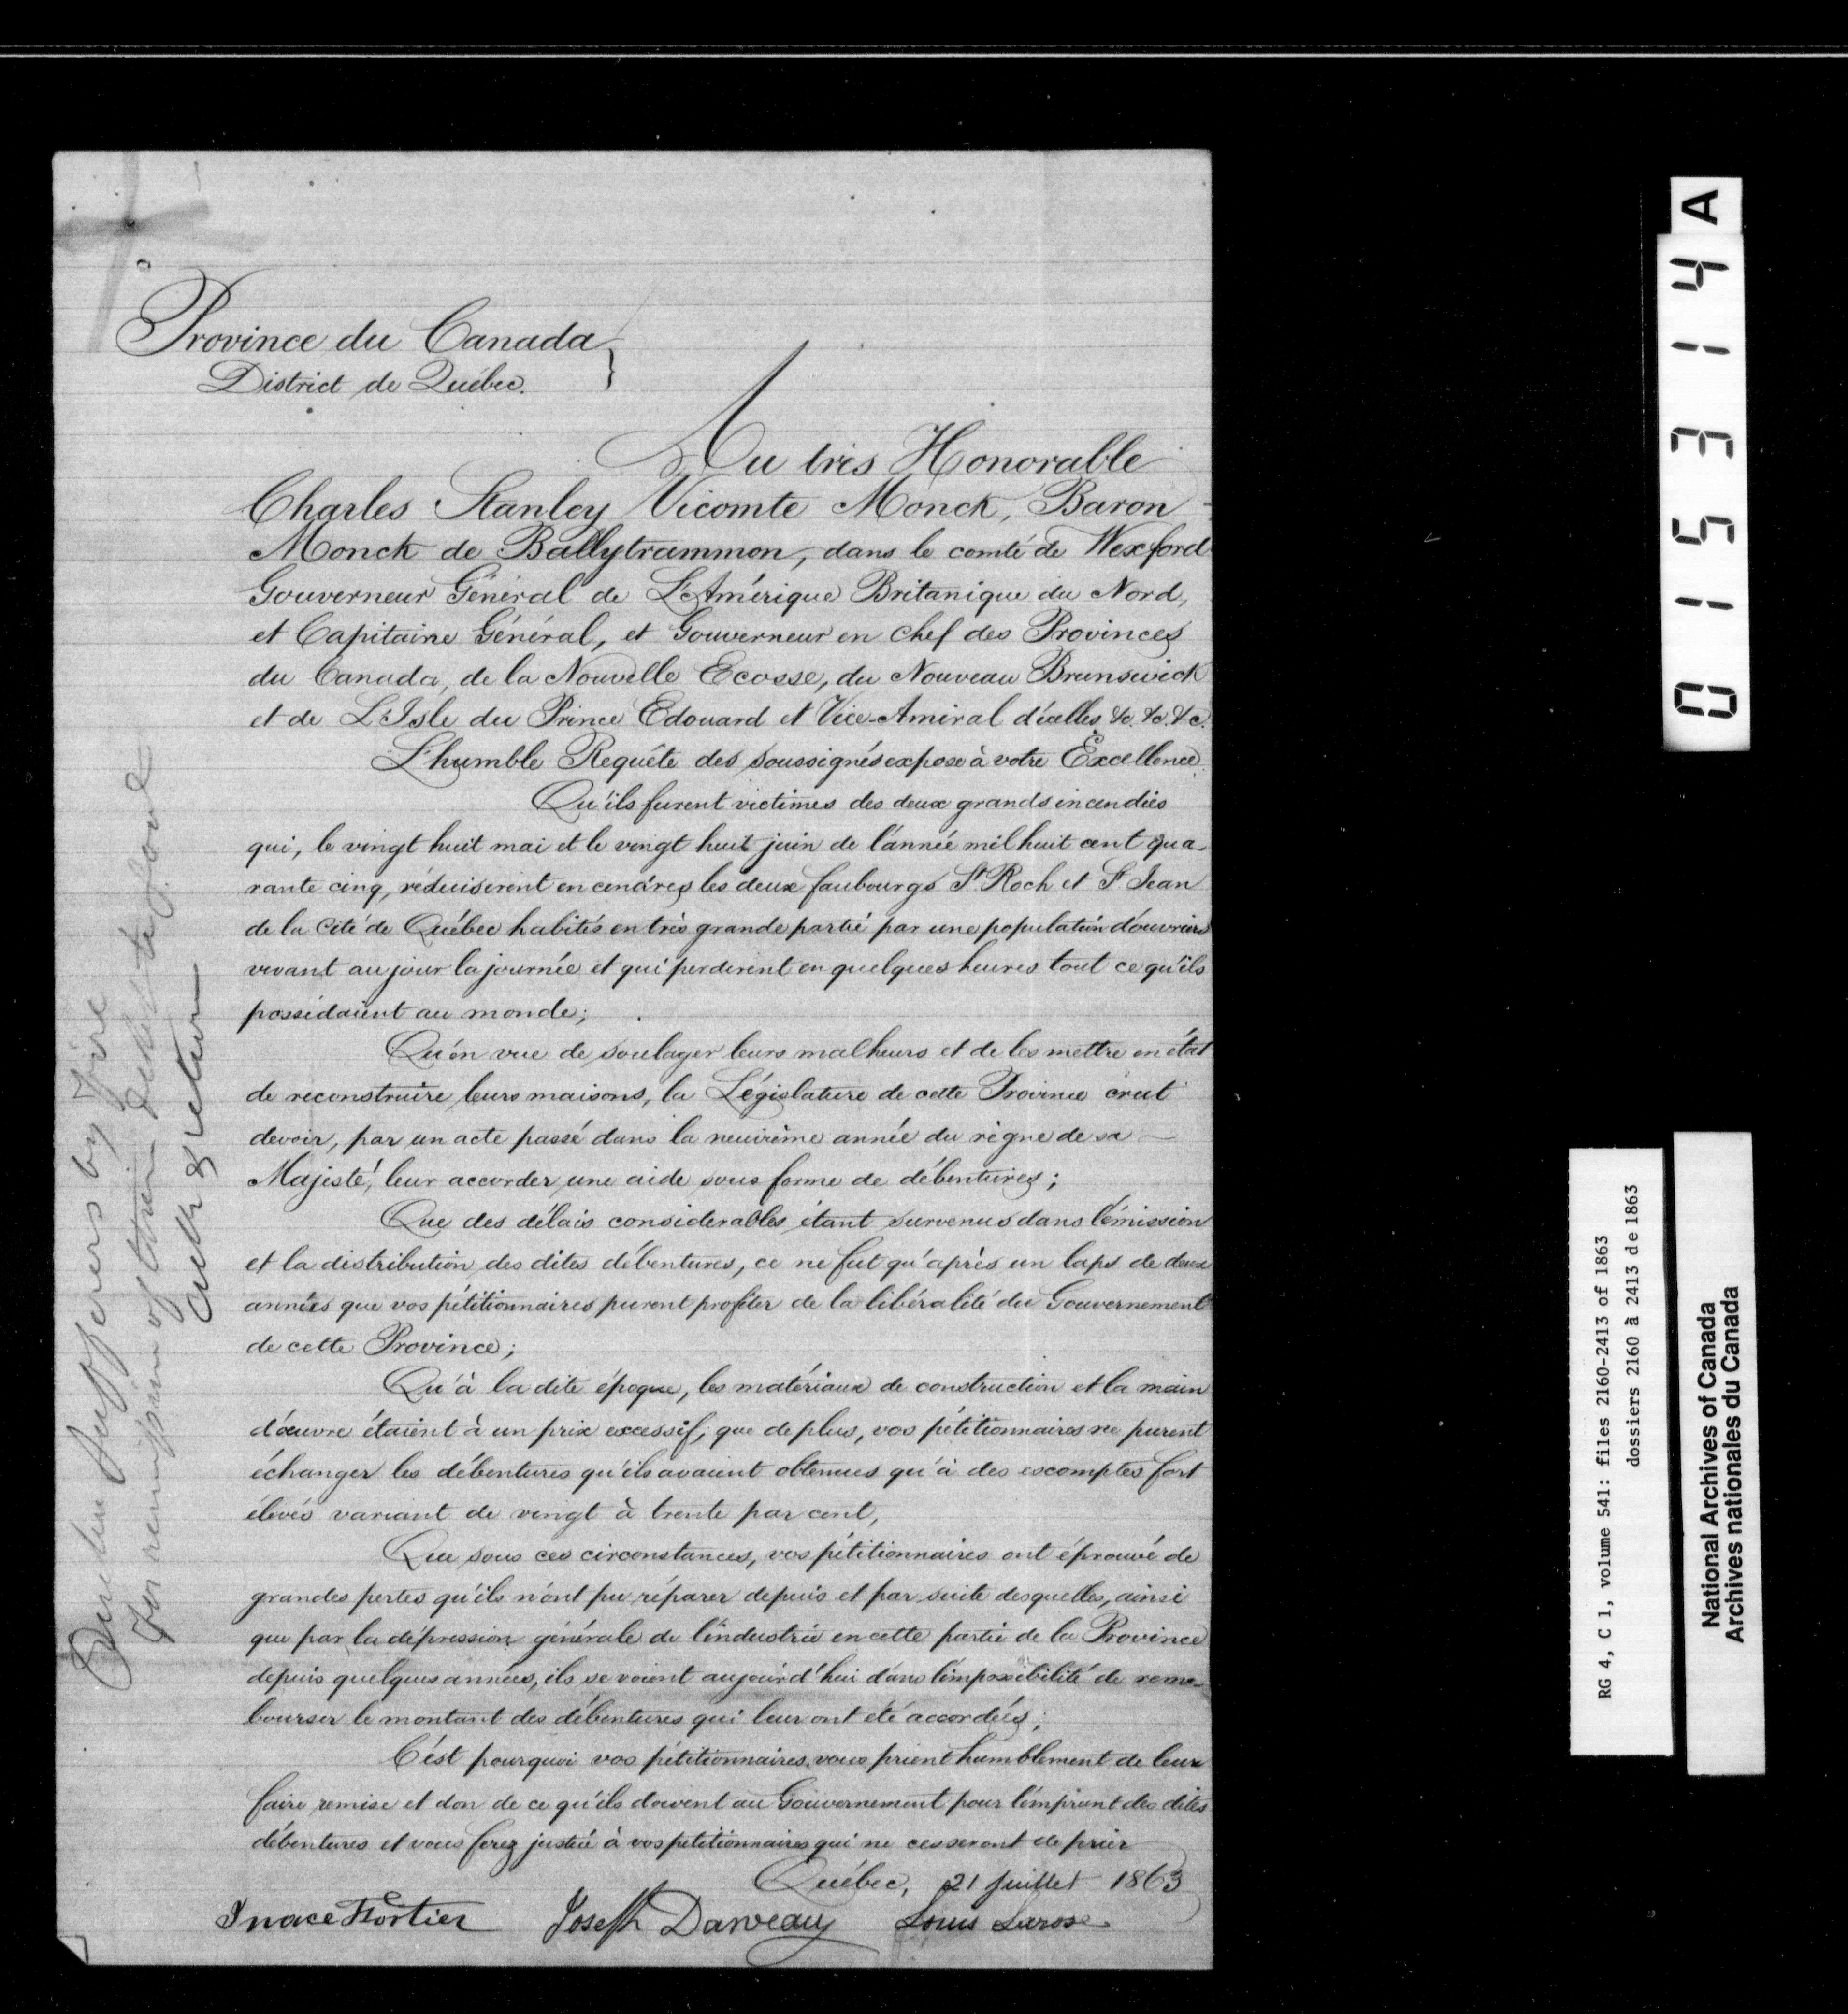 Province du Canada }
District de Québec.
Au très Honorable
Charles Stanley Vicomte Monck, Baron
Monck de Ballytrammon, dans le comté de Wexford
Gouverneur Général de L'Amérique Britanique du Nord,
et Capitaine Général, et Gouverneur en chef des Provinces
du Canada, de la Nouvelle Ecosse, du Nouveau Brunswick
et de L'Isle du Prince Edouard et Vice-Amiral d'icelles &c. &c. &c.
L'humble Requête des soussignés expose à votre Excellence
Qu'ils furent victimes des deux grands incendies
qui, le vingt huit mai et le vingt huit juin de l'année mil huit cent qua-
rante cinq, réduisirent en cendres les deux faubourgs St. Roch et St. Jean
de la Cité de Québec habités en très grande partie par une population d'ouvriers
vivant au jour la journée et qui perdirent en quelques heures tout ce qu'ils
possédaient au monde;
Qu'en vue de soulager leurs malheurs et de les mettre en état
de reconstruire leurs maisons, la Législature de cette Province crut
devoir, par un acte passé dans la neuvième année du règne de sa
Majesté, leur accorder une aide sous forme de débentures;
Que des délais considerables étant survenus dans l'émission
et la distribution des dites débentures, ce ne fut qu'après un laps de deux
années que vos pétitionnaires purent profiter de la libéralité du Gouvernement
de cette Province;
Qu'à la dite époque, les matériaux de construction et la main
d'œuvre étaient à un prix excessif; que de plus, vos pétitionnaires ne purent
échanger les débentures qu'ils avaient obtenues qu'à des escomptes fort
élevés variant de vingt à trente par cent,
Que sous ces circonstances, vos pétitionnaires ont éprouvé de
grandes pertes qu'ils n'ont pu réparer depuis et par suite desquelles, ainsi
que par la dépression générale de l'industrie en cette partie de la Province
depuis quelques années, ils se voient aujourd'hui dans l'impossibilité de rem-
bourser le montant des débentures qui leur ont été accordées;
C'est pourquoi vos pétitionnaires vous prient humblement de leur
faire remise et don de ce qu'ils doivent au Gouvernement pour l'emprunt des dites
débentures et vous ferez justice à vos pétitionnaires qui ne cesseront de prier
Québec, 21 Juillet 1863
Inace Fortier Joseph Darveau Louis Larose
Quebec Sufferers by Fire
for remission of their Debt to fond
0 1 5 3 1 4 A
RG 4, C 1, volume 541: files 2160-2413 of 1863
dossiers 2160 à 2413 de 1863
National Archives of Canada
Archives nationales du Canada